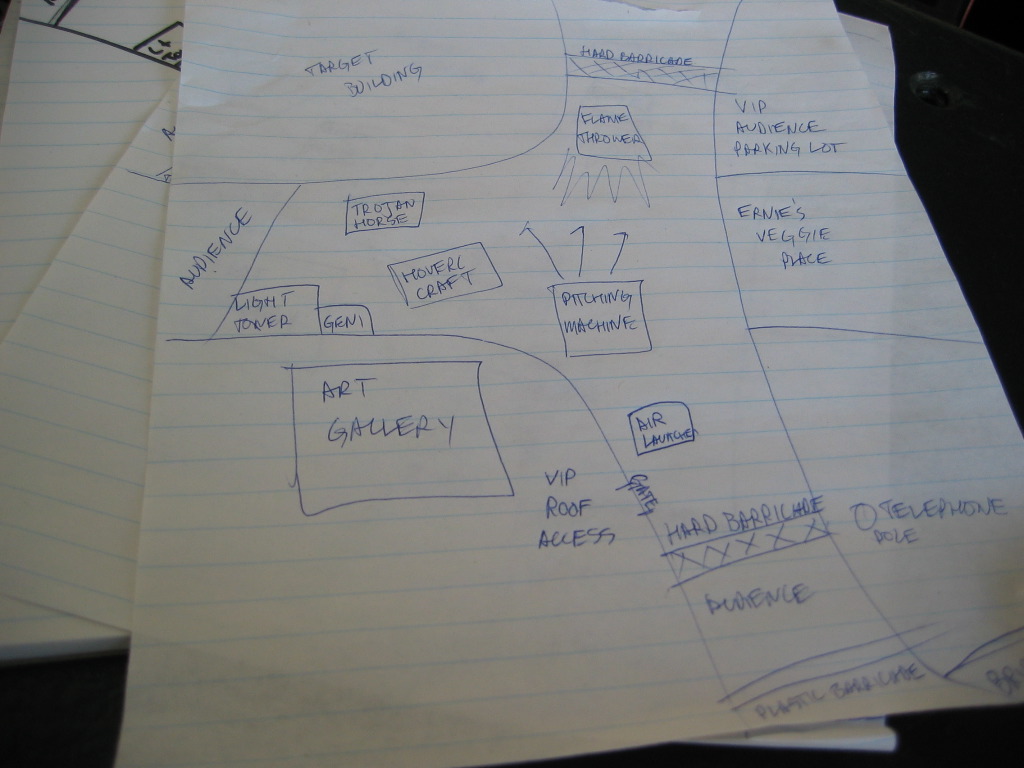 TARGET
BUILDING
HARD BARRICADE
FLAME
THROWER
VIP
AUDIENCE
PARKING LOT
TROJAN
HORSE
AUDIENCE
ERNIE'S
VEGGIE
PLACE
HOVERC
CRAFT
LIGHT
TOWER
GENI
PITCHING
MACHINE
ART
GALLERY
AIR
LAUNCHER
VIP
ROOF
ACCESS
GATE
HARD BARRICADE
TELEPHONE
POLE
AUDIENCE
PLASTIC BARRICADE